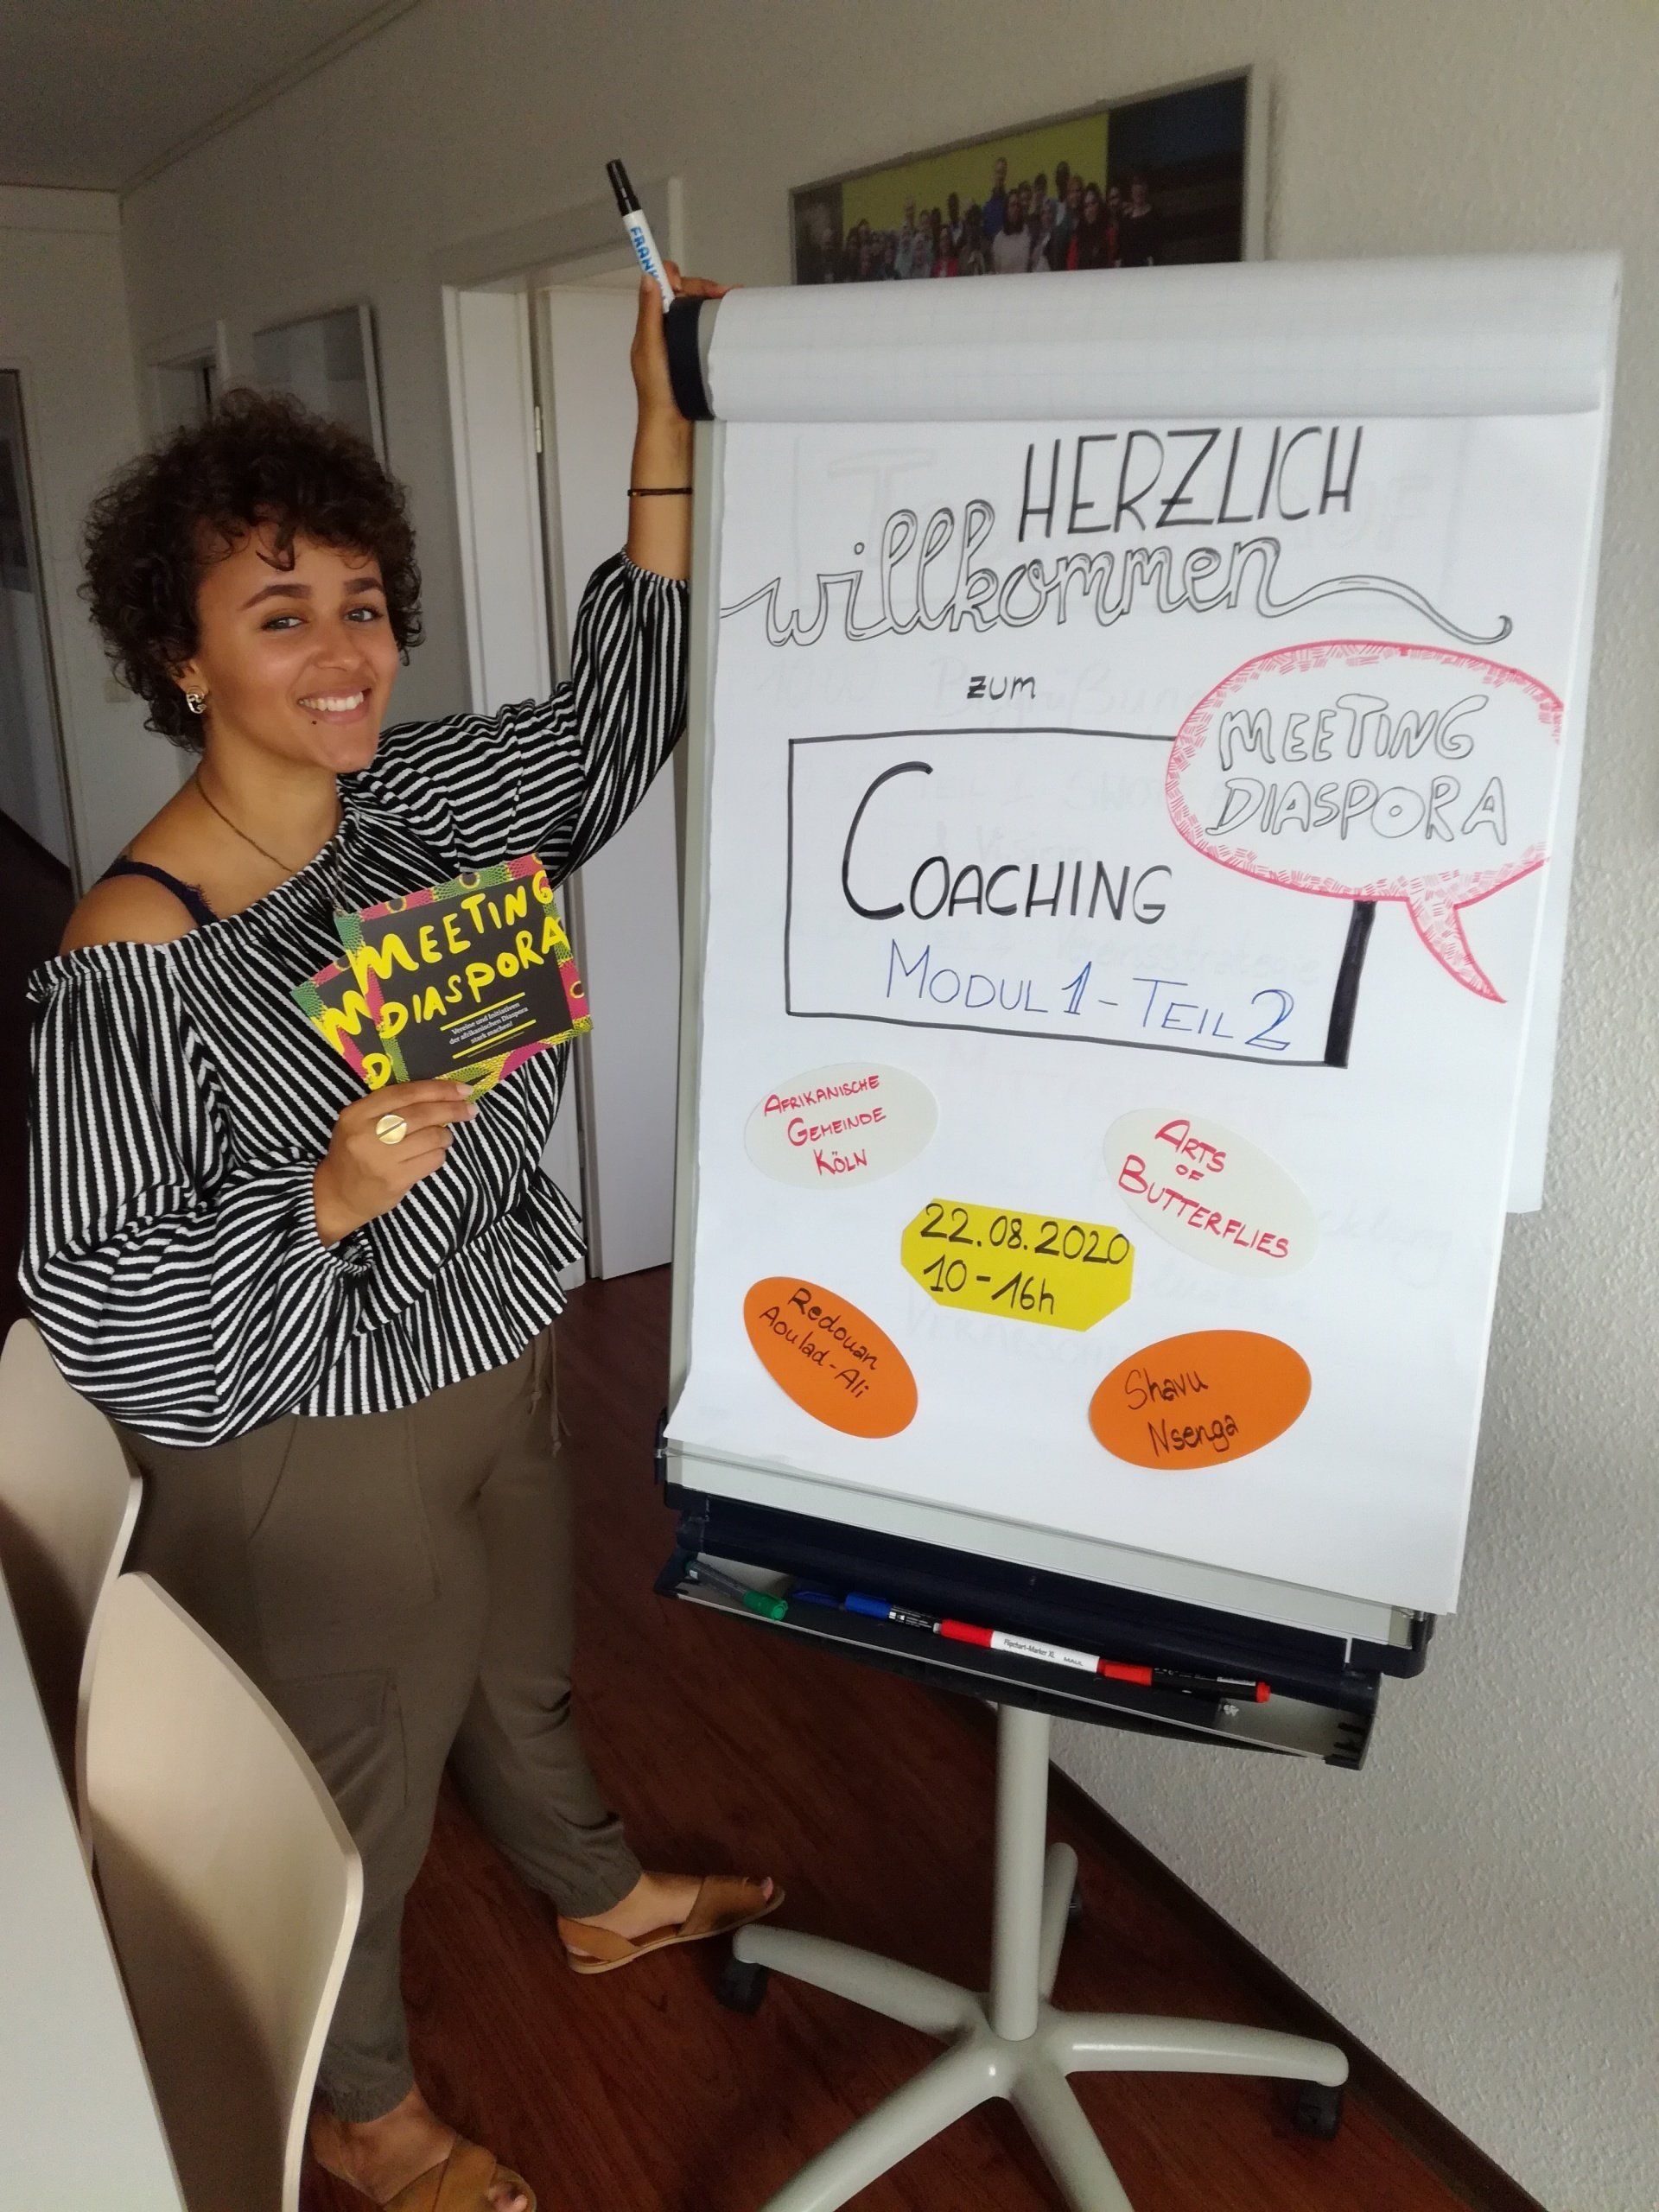 HERZLICH
willkommen
zum
MEETING
DIASPORA
COACHING
MODUL 1 - TEIL 2
AFRIKANISCHE
GEMEINDE
KÖLN
ARTS
OF
BUTTERFLIES
22.08.2020
10-16h
Redouan
Aoulad-Ali
Shavu
Nsenga
MEETING
DIASPORA
Vereine und Initiativen
der afrikanischen Diaspora
stark machen!
M
D
FRANK
Flipchart-Marker XL MAUL